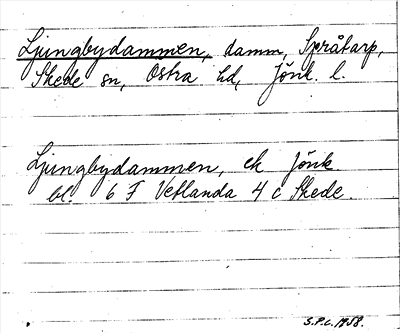 Ljungbydammen, damm, Språtarp,
Skede sn, Östra hd, Jönk. l.
Ljungbydammen, ek Jönk
bl. 6 F Vetlanda 4 c Skede.
S.P.C. 1958.